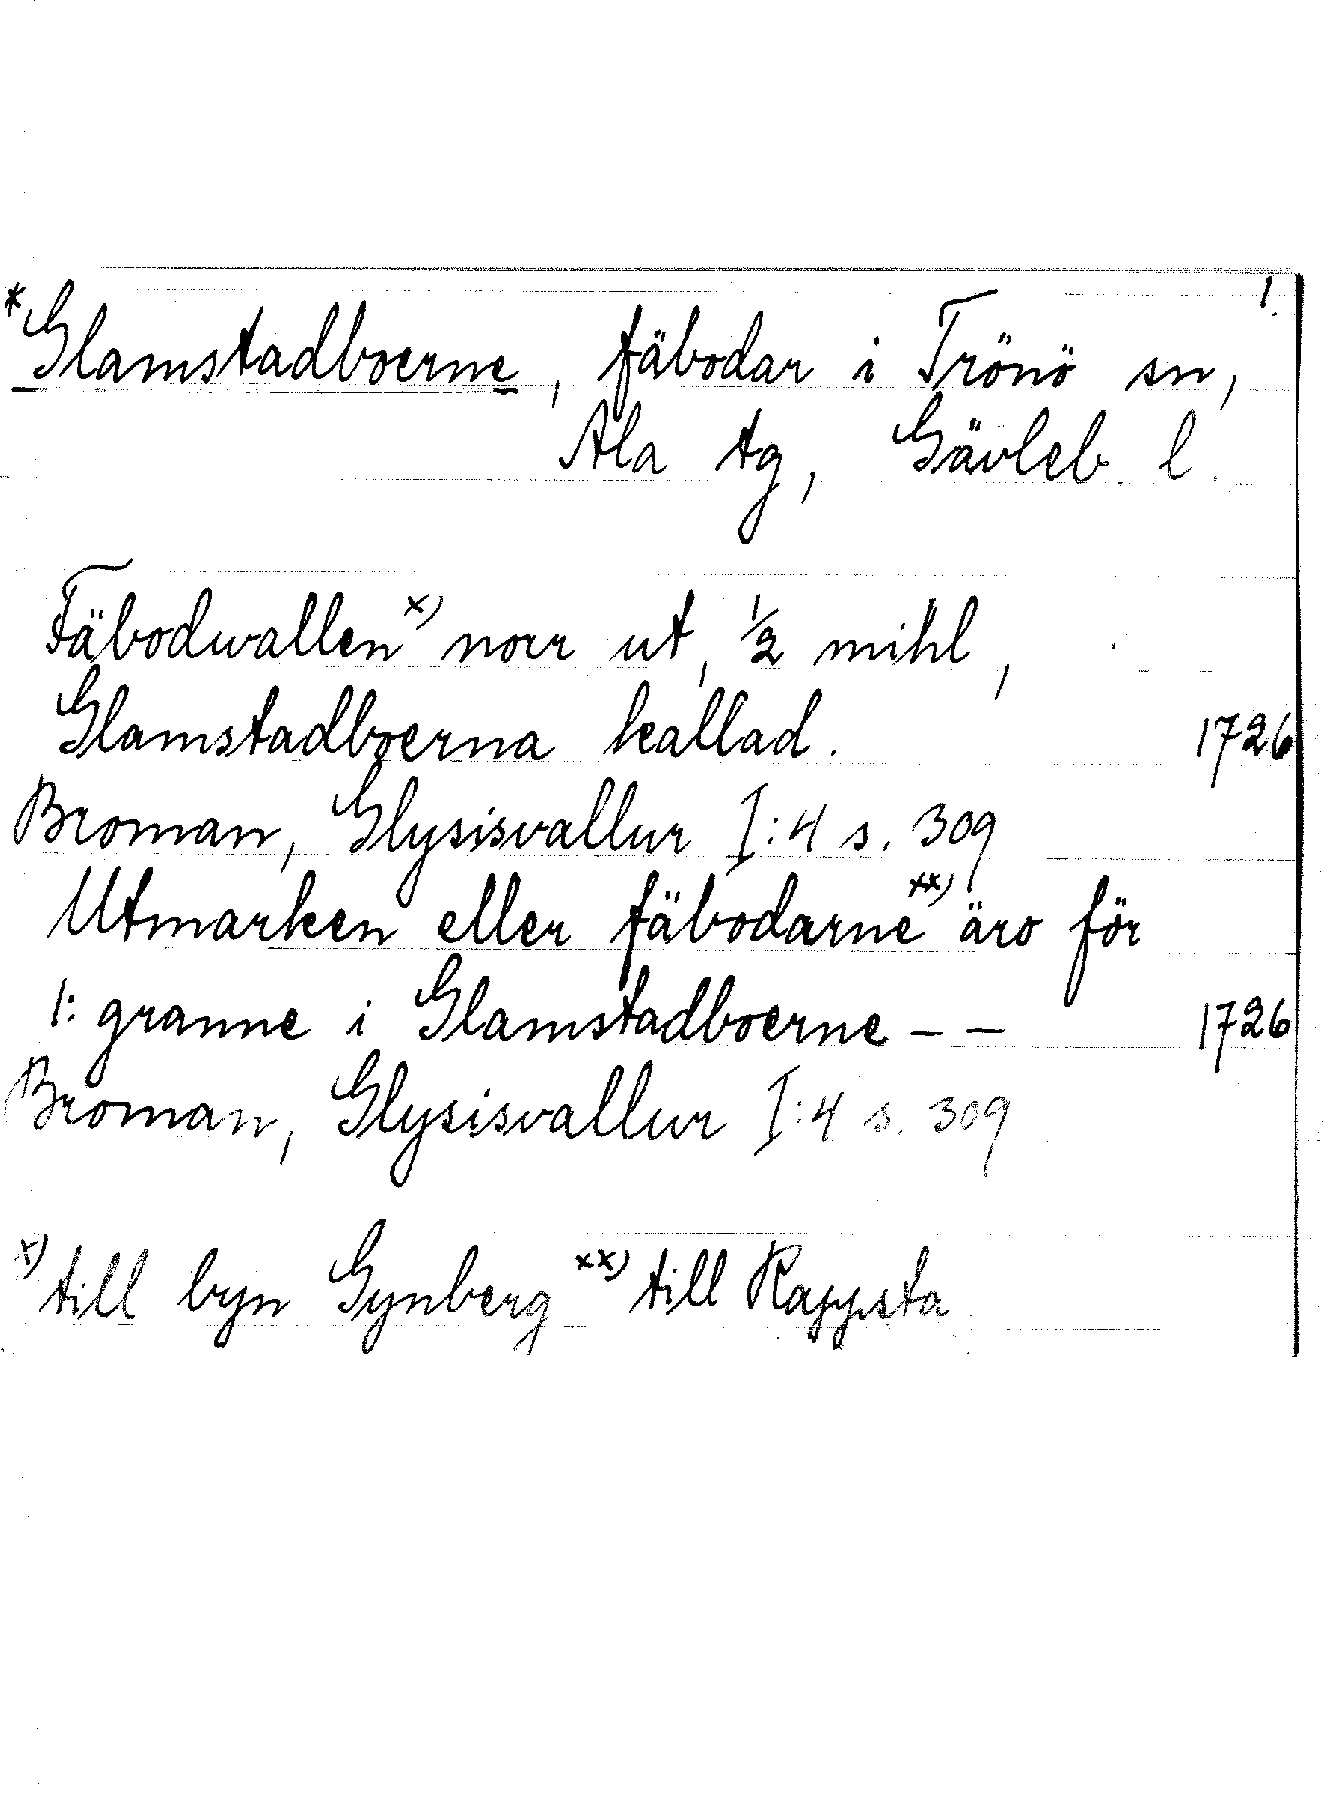 1.
*Glamstadboerne, fäbodar i Trönö sn,
Ala tg, Gävleb. l.
Fäbodwallen x) norr ut, 1/2 mihl,
Glamstadboerna kallad. 1726
Broman, Glysisvallur I:4 s. 309
Utmarken eller fäbodarne xx) äro för
1: granne i Glamstadboerne – – 1726
Broman, Glysisvallur I:4 s. 309
x) till byn Gynberg xx) till Rappsta